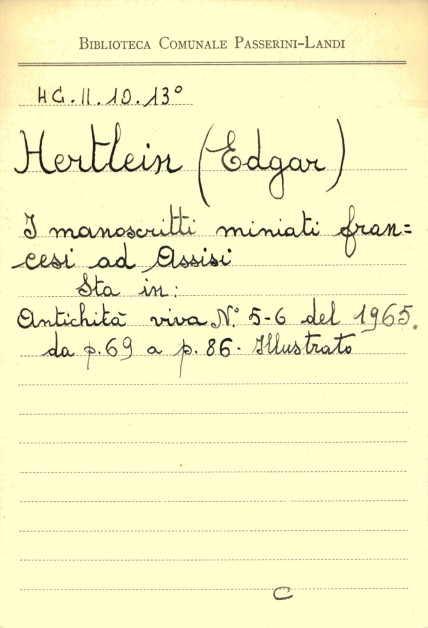 BIBLIOTECA COMUNALE PASSERINI-LANDI
4C.II.10.13°
Hertlein (Edgar)
I manoscritti miniati fran=
cesi ad Assisi
Sta in:
Antichità viva N.° 5-6 del 1965.
da p.69 a p.86. Illustrato
C